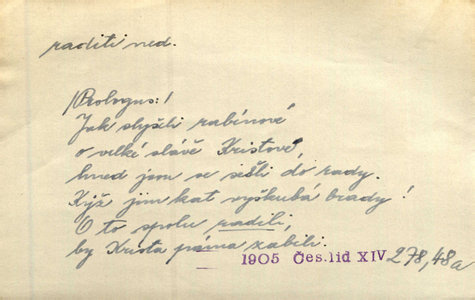 raditi ned.
/Prologus:/
Jak slyšeli rabínové
o velké slávě Kristově,
hned jsou se sešli do rady.
Kýž jim kat vyškubá brady!
O to spolu radili,
by Krista pána zabili.
1905 Čes. lid XIV 278, 48a